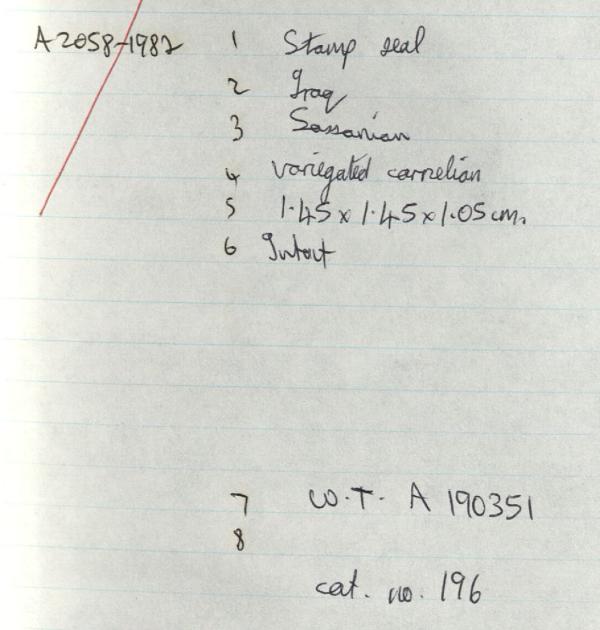 A 2058-1982 1 Stamp seal
2 Iraq
3 Sassanian
4 variegated carnelian
5 1.45 x 1.45 x 1.05 cm.
6 Intact
7 W.T. A 190351
8
cat. no. 196